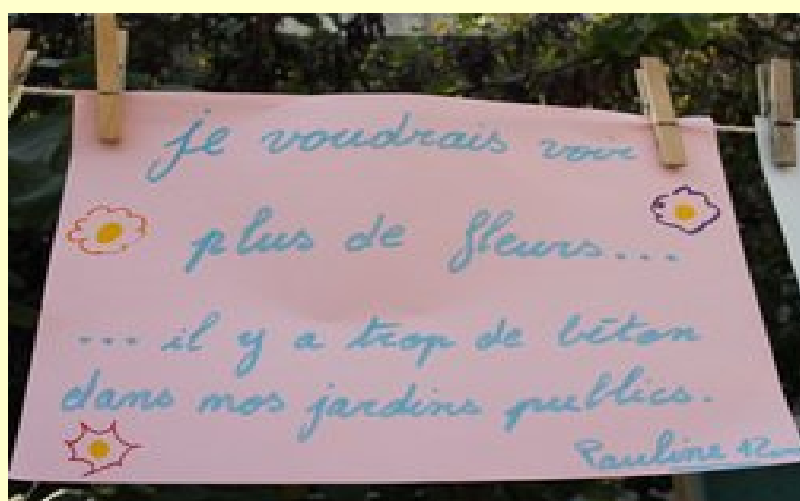 je voudrais voir
plus de fleurs...
... il y a trop de béton
dans nos jardins publics.
Pauline 12